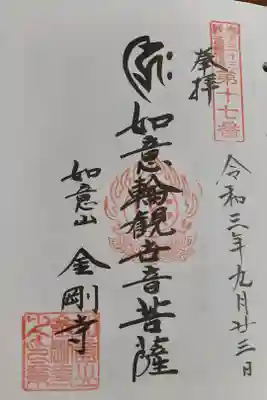 第十七番
奉拝
令和三年九月廿三日
如意輪観世音菩薩
如意山
金剛寺